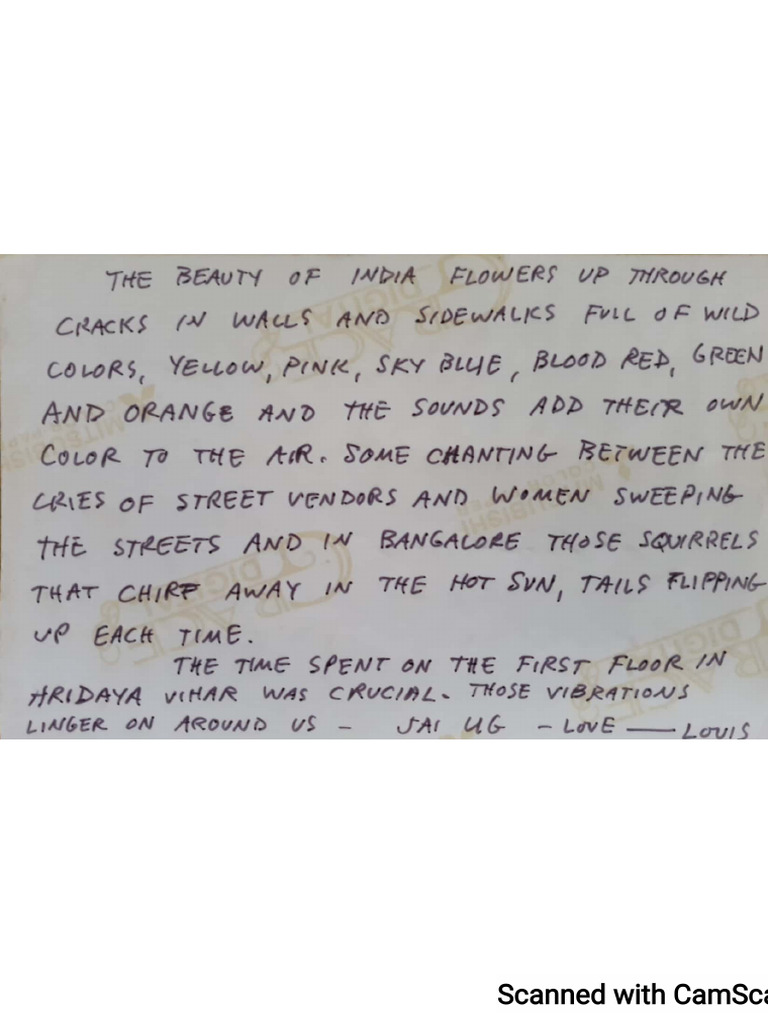 THE BEAUTY OF INDIA FLOWERS UP THROUGH
CRACKS IN WALLS AND SIDEWALKS FULL OF WILD
COLORS, YELLOW, PINK, SKY BLUE, BLOOD RED, GREEN
AND ORANGE AND THE SOUNDS ADD THEIR OWN
COLOR TO THE AIR. SOME CHANTING BETWEEN THE
CRIES OF STREET VENDORS AND WOMEN SWEEPING
THE STREETS AND IN BANGALORE THOSE SQUIRRELS
THAT CHIRP AWAY IN THE HOT SUN, TAILS FLIPPING
UP EACH TIME.
THE TIME SPENT ON THE FIRST FLOOR IN
HRIDAYA VIHAR WAS CRUCIAL. THOSE VIBRATIONS
LINGER ON AROUND US – JAI UG – LOVE — LOUIS
Scanned with CamSca